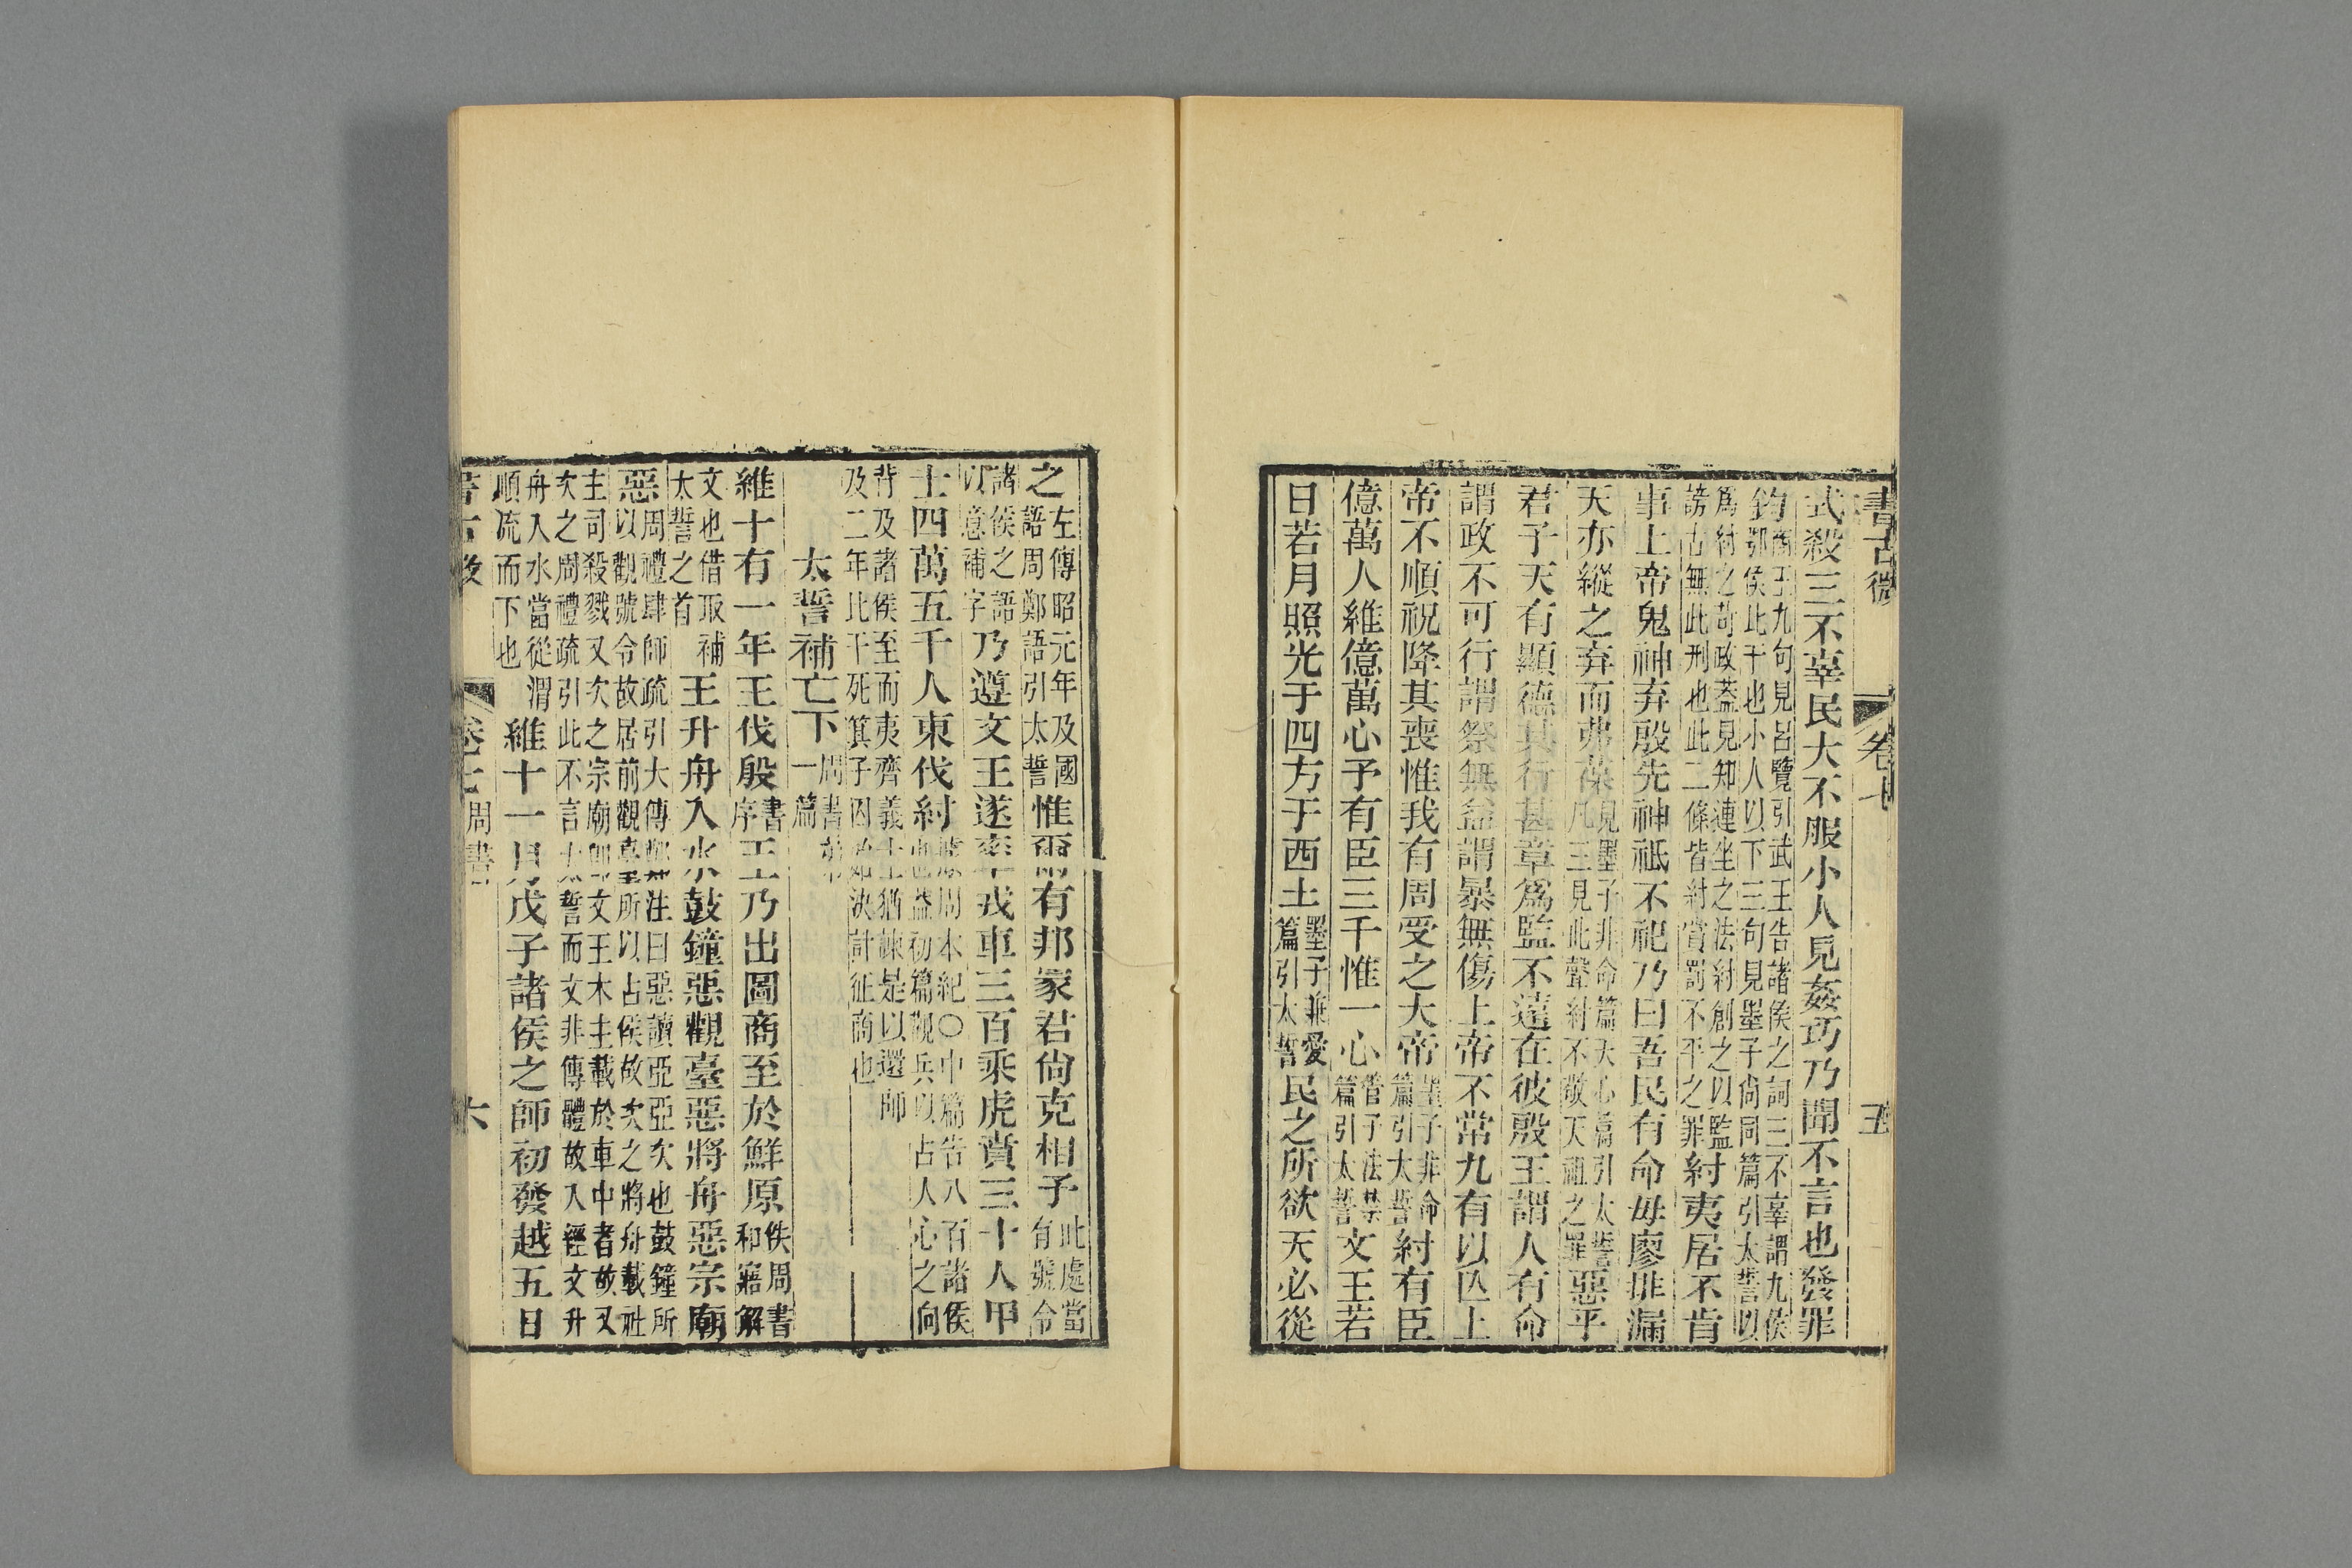 書古微
卷七
五
式殺三不辜民大不服小人見姦巧乃聞不言也發罪
鈞商王九句見呂覽引武王告諸侯之詞三不辜謂九侯
鄂侯比干也小人以下三句見墨子尙同篇引太誓以
爲紂之苛政葢見知連坐之法紂創之以監
謗古無此刑也此二條皆紂賞罰不平之罪紂夷居不肯
事上帝鬼神弃殷先神祗不祀乃曰吾民有命毋廖排漏
天亦縱之弃而弗葆見墨子非命篇天心篇引太誓
凡三見此聲紂不敬天祖之罪惡乎
君子天有顯德其行甚章爲監不遠在彼殷王謂人有命
謂政不可行謂祭無益謂暴無傷上帝不常九有以亡上
帝不順祝降其喪惟我有周受之大帝墨子非命
篇引太誓紂有臣
億萬人維億萬心予有臣三千惟一心管子法禁
篇引太誓文王若
日若月照光于四方于西土墨子兼愛
篇引太誓民之所欲天必從
之左傳昭元年及國
語周鄭語引太誓惟爾有邦冢君尙克相予此處當
有號令
諸侯之語
以意補字乃遵文王遂率戎車三百乘虎賁三十人甲
士四萬五千人東伐紂周本紀○中篇告八百諸侯
也葢初篇觀兵以占人心之向
背及諸侯至而夷齊義士猶諫是以還師
及二年比干死箕子囚始決計征商也
太誓補亡下周書
一篇
維十有一年王伐殷書
序王乃出圖商至於鮮原佚周書
和寤解
文也借取補
太誓之首王升舟入水鼓鐘惡觀臺惡將舟惡宗廟
惡周禮肆師疏引大傳鄭注曰惡讀亞亞次也鼓鐘所
以觀號令故居前觀臺所以占侯故次之將舟載社
主司殺戮又次之宗廟文王木主載於車中者故又
次之周禮疏引此不言太誓而文非傳體故入經文升
舟入水當從渭
順流而下也維十一月戊子諸侯之師初發越五日
卷七
周書
六